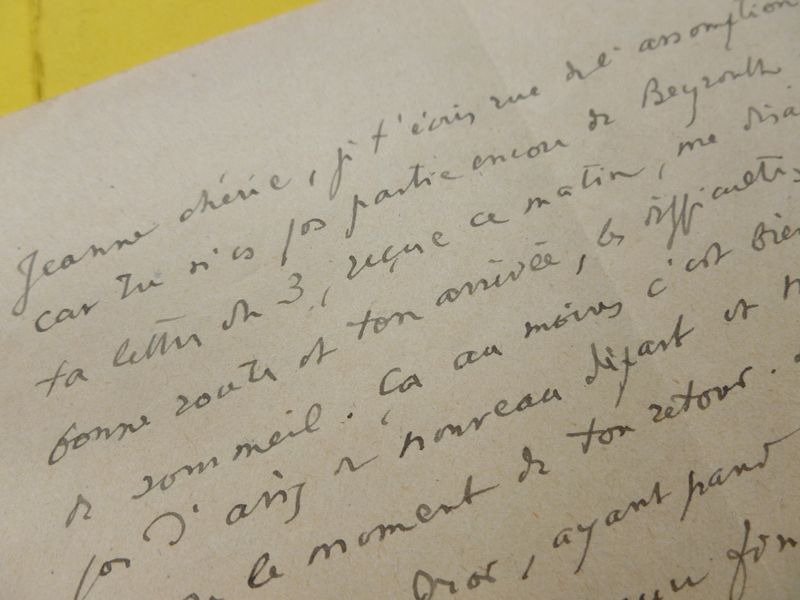 Jeanne chérie, je t'écris rue de l'assomption
car tu n'es pas partie encore de Beyrouth
ta lettre du 3, reçue ce matin, me disa
bonne route et ton arrivée, les difficultés
de sommeil. Ça au moins c'est bien
pas d' de nouveau départ et
le moment de ton retour.
ayant